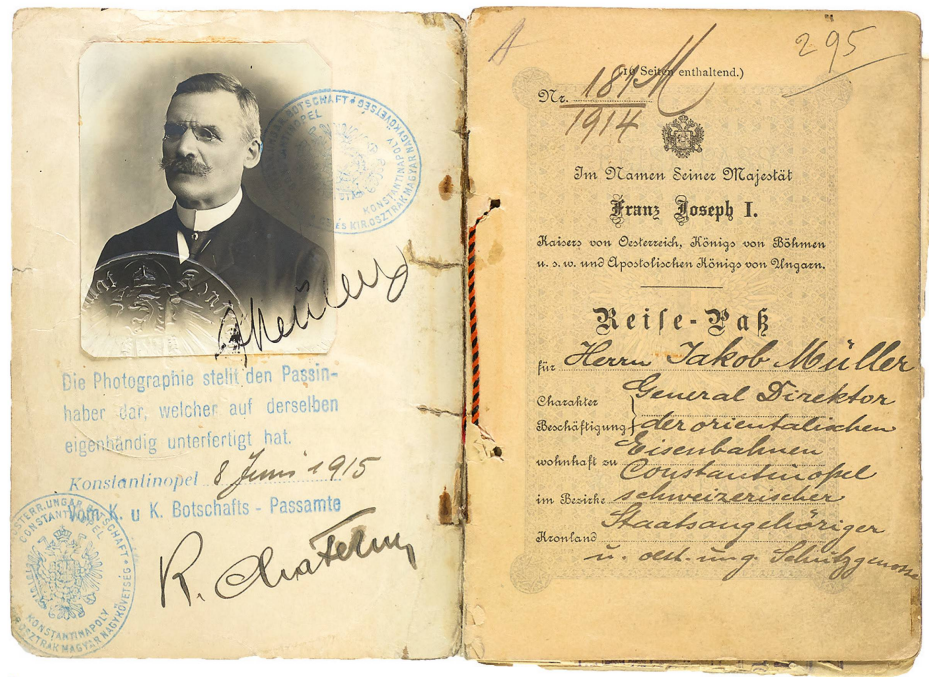 Die Photographie stellt den Passin-
haber dar, welcher auf derselben
eigenhändig unterfertigt hat.
Konstantinopel 8 Juni 1915
Vom K. u K. Botschafts - Passamte
ÖSTERR. UNGAR. BOTSCHAFT
CONSTANTINOPEL
KONSTANTINAPOLY
OSZTRÁK MAGYAR NAGYKÖVETSÉG
A
295
(16 Seiten enthaltend.)
Nr. 181 M
1914
Im Namen Seiner Majestät
Franz Joseph I.
Kaisers von Oesterreich, Königs von Böhmen
u. s. w. und Apostolischen Königs von Ungarn.
Reise-Paß
für Herrn Jakob Müller
Charakter General Direktor
Beschäftigung der orientalischen
Eisenbahnen
wohnhaft zu Constantinopel
im Bezirke schweizerischer
Staatsangehöriger
Kronland
u. öst. ung. Schutzgenosse